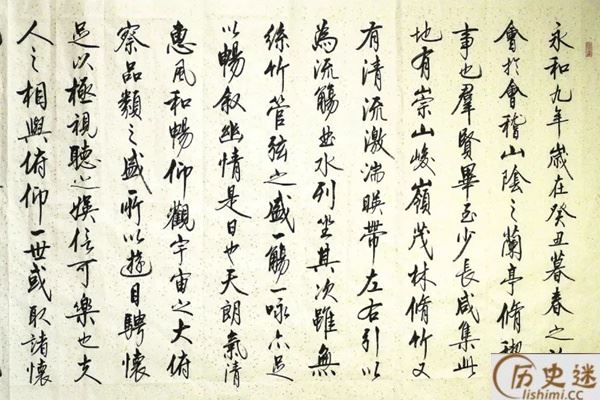 永和九年歲在癸丑暮春之
會於會稽山陰之蘭亭脩禊
事也羣賢畢至少長咸集此
地有崇山峻嶺茂林脩竹又
有清流激湍暎帶左右引以
為流觴曲水列坐其次雖無
絲竹管弦之盛一觴一咏亦足
以暢敘幽情是日也天朗氣清
惠風和暢仰觀宇宙之大俯
察品類之盛所以遊目騁懷
足以極視聽之娛信可樂也夫
人之相與俯仰一世或取諸懷
历史迷
lishimi.cc